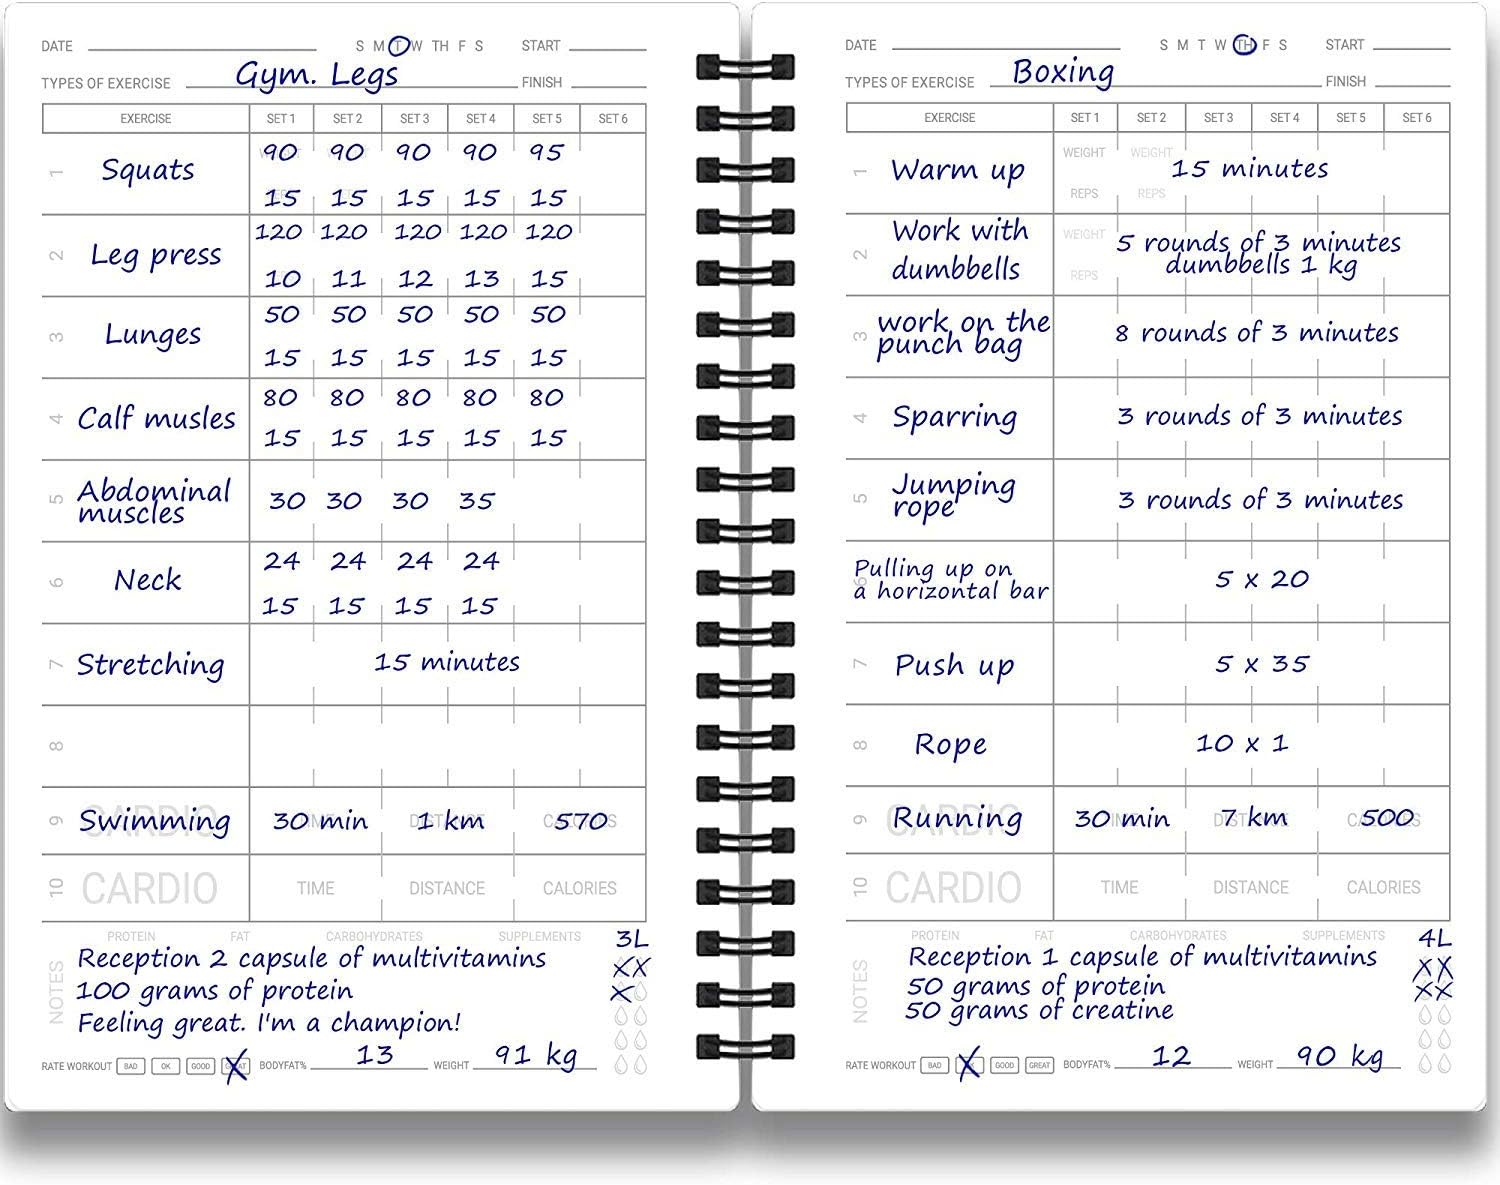 DATE S M T W TH F S START
TYPES OF EXERCISE Gym. Legs FINISH
EXERCISE SET 1 SET 2 SET 3 SET 4 SET 5 SET 6
90 90 90 90 95
1 Squats
15 15 15 15 15
120 120 120 120 120
2 Leg press
10 11 12 13 15
50 50 50 50 50
3 Lunges
15 15 15 15 15
80 80 80 80 80
4 Calf musles
15 15 15 15 15
5 Abdominal
muscles 30 30 30 35
24 24 24 24
6 Neck
15 15 15 15
7 Stretching 15 minutes
8
9 CARDIO Swimming TIME 30 min DISTANCE 1 km CALORIES 570
10 CARDIO TIME DISTANCE CALORIES
PROTEIN FAT CARBOHYDRATES SUPPLEMENTS 3L
NOTES
Reception 2 capsule of multivitamins XX
100 grams of protein X
Feeling great. I'm a champion!
RATE WORKOUT BAD OK GOOD GREAT X BODYFAT% 13 WEIGHT 91 kg
DATE S M T W TH F S START
TYPES OF EXERCISE Boxing FINISH
EXERCISE SET 1 SET 2 SET 3 SET 4 SET 5 SET 6
WEIGHT WEIGHT
1 Warm up 15 minutes
REPS REPS
2 Work with
dumbbells
WEIGHT 5 rounds of 3 minutes
dumbbells 1 kg
REPS
3 work on the
punch bag
8 rounds of 3 minutes
4 Sparring 3 rounds of 3 minutes
5 Jumping
rope
3 rounds of 3 minutes
6 Pulling up on
a horizontal bar
5 x 20
7 Push up 5 x 35
8 Rope 10 x 1
9 CARDIO Running TIME 30 min DISTANCE 7 km CALORIES 500
10 CARDIO TIME DISTANCE CALORIES
PROTEIN FAT CARBOHYDRATES SUPPLEMENTS 4L
NOTES
Reception 1 capsule of multivitamins XX
50 grams of protein XX
50 grams of creatine
RATE WORKOUT BAD X GOOD GREAT BODYFAT% 12 WEIGHT 90 kg